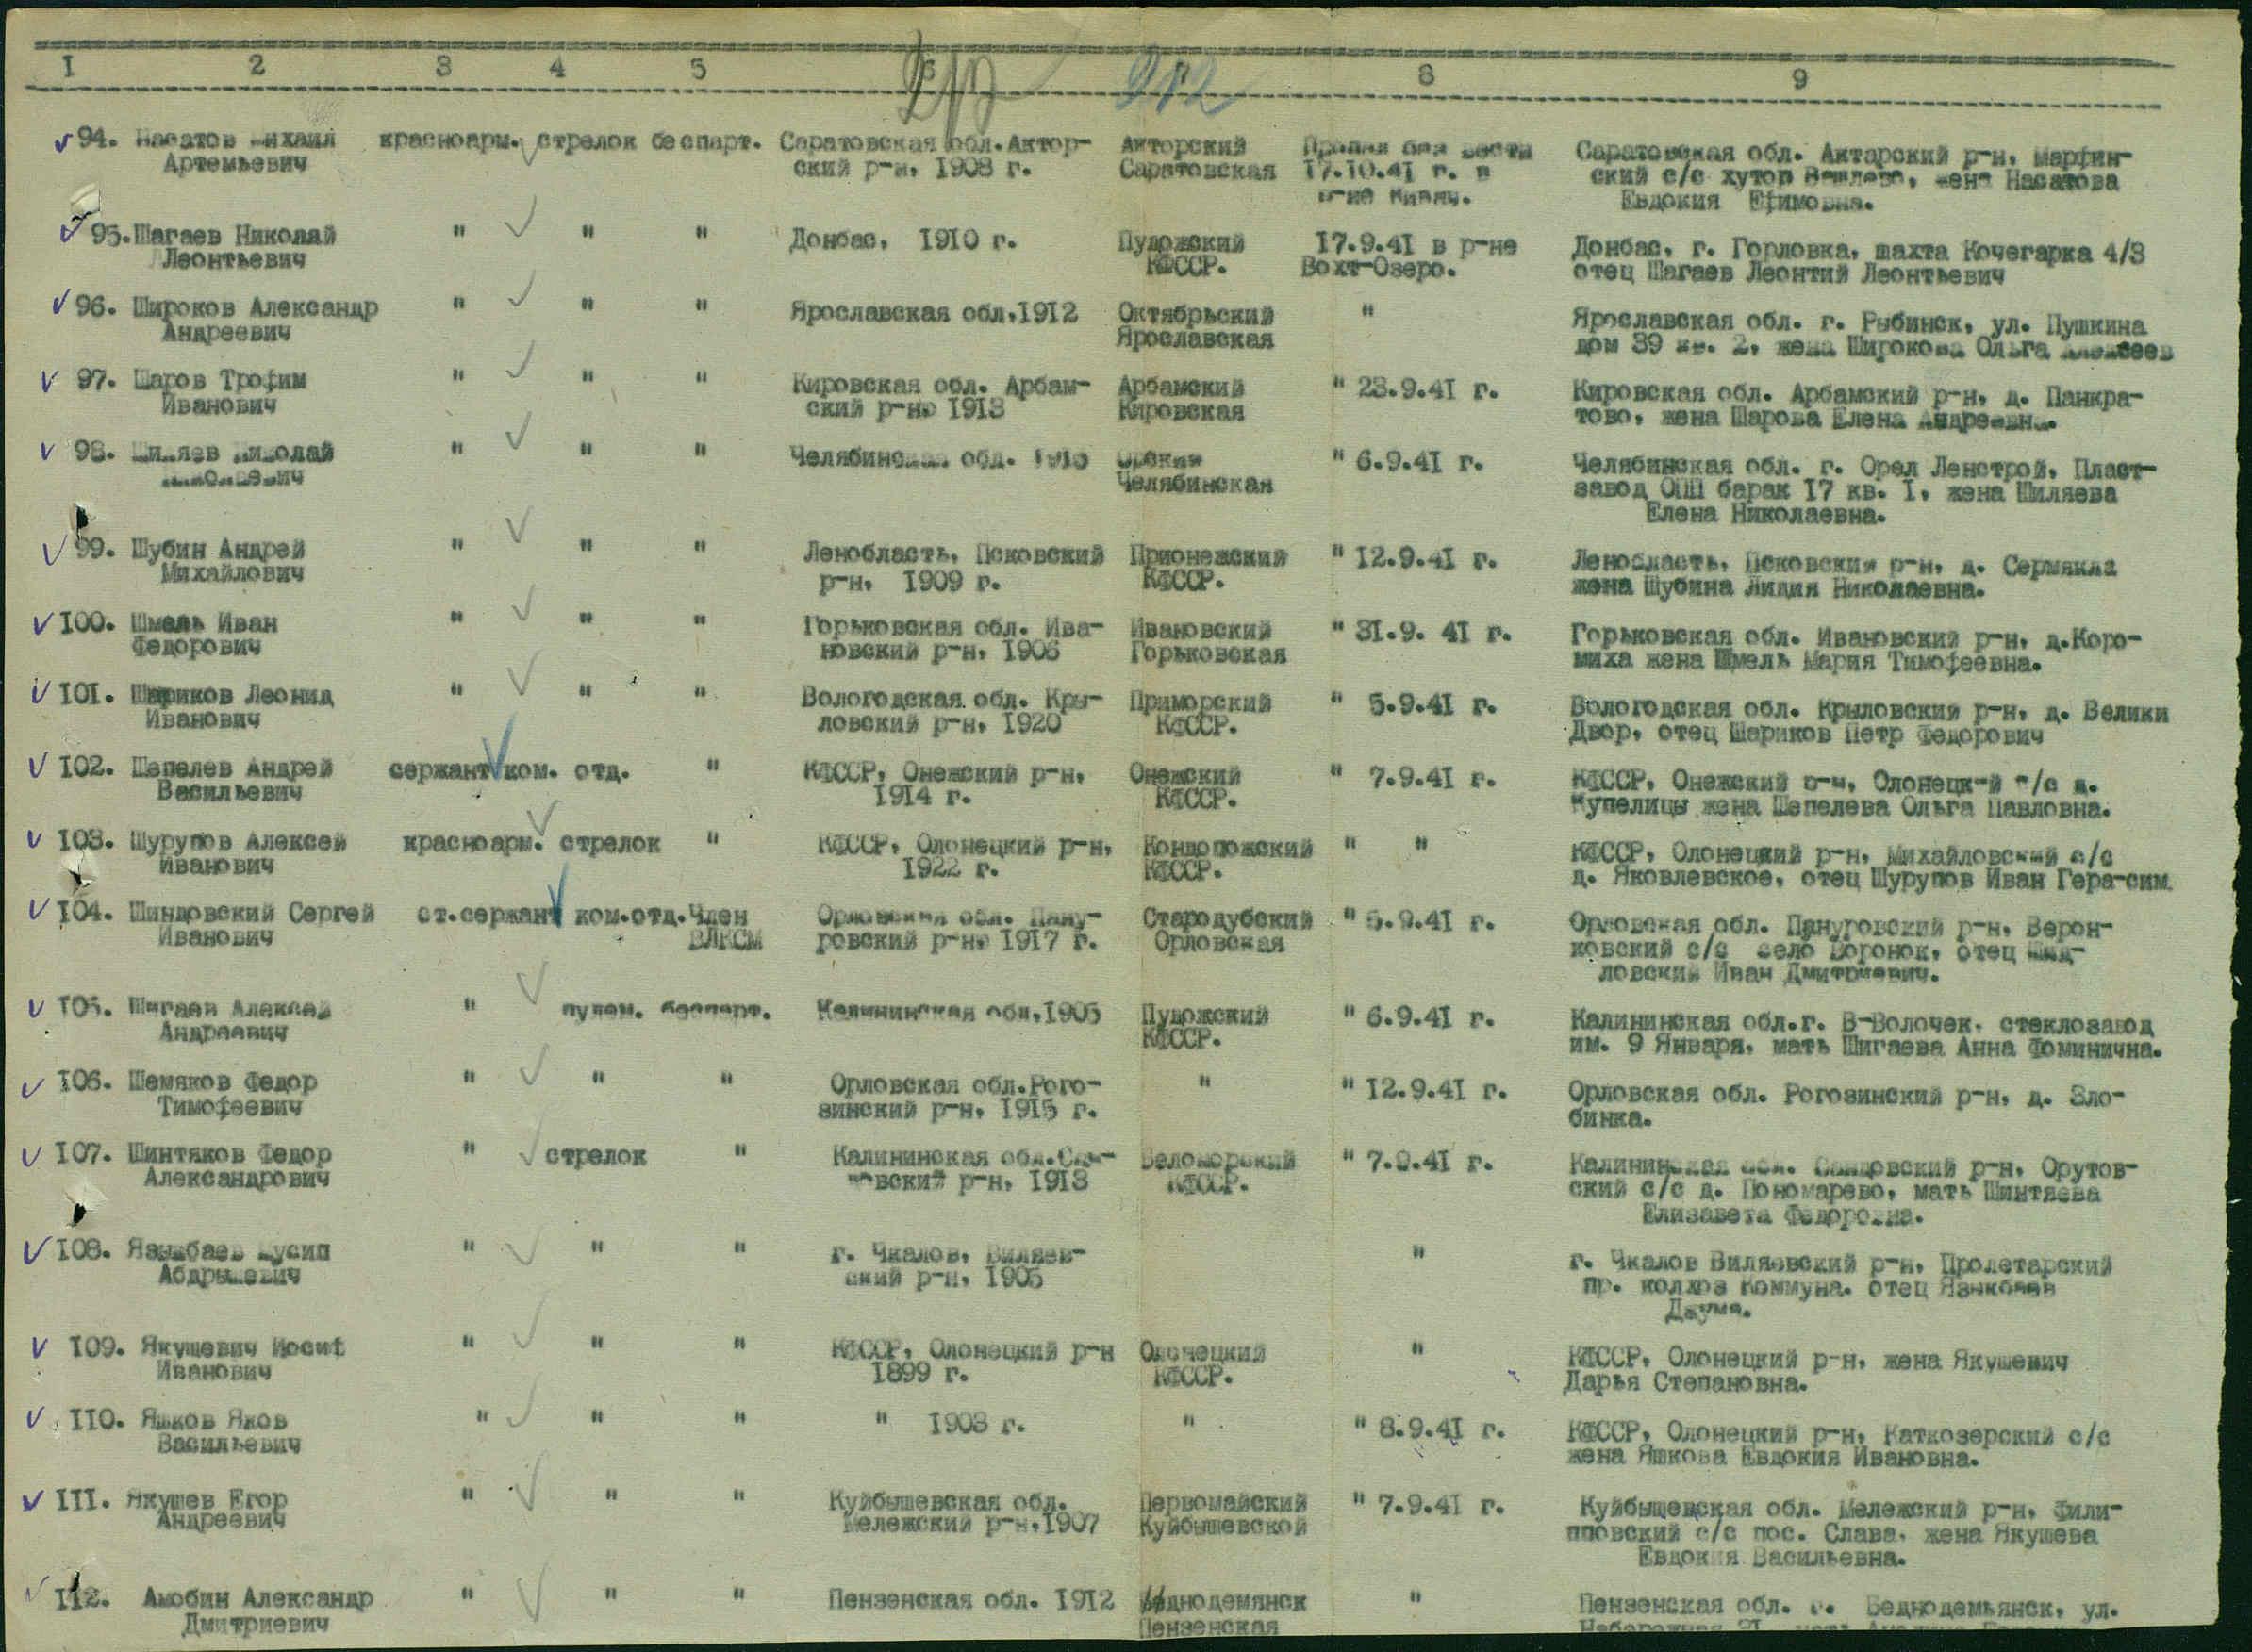 I 2 3 4 5 6 8 9
94. Насатов Михаил красноарм. стрелок беспарт. Саратовская обл. Актор- Акторский Пропал без вести Саратовская обл. Актарский р-н, Марфин-
Артемьевич ский р-н, 1908 г. Саратовская 17.10.41 г. в ский с/с хутор жена Насатова
р-не Евдокия Ефимовна.
95. Шагаев Николай " " " Донбас, 1910 г. Пудожский 17.9.41 в р-не Донбас, г. Горловка, шахта Кочегарка 4/3
Леонтьевич КФССР. Вохт-Озеро. отец Шагаев Леонтий Леонтьевич
96. Широков Александр " " " Ярославская обл. 1912 Октябрьский " Ярославская обл. г. Рыбинск, ул. Пушкина
Андреевич Ярославская дом 39 кв. 2, жена Широкова Ольга Алексеев
97. Шаров Трофим " " " Кировская обл. Арбам- Арбамский " 23.9.41 г. Кировская обл. Арбамский р-н, д. Панкра-
Иванович ский р-н, 1913 Кировская тово, жена Шарова Елена Андреевна.
98. Шиляев Николай " " " Челябинская обл. Орский " 6.9.41 г. Челябинская обл. г. Орел Ленстрой, Пласт-
Челябинская завод ОПП барак 17 кв. I, жена Шиляева
Елена Николаевна.
99. Шубин Андрей " " " Ленобласть, Псковский Прионежский " 12.9.41 г. Ленобласть, Псковский р-н, д. Сермякла
Михайлович р-н, 1909 г. КФССР. жена Шубина Лидия Николаевна.
I00. Шмель Иван " " " Горьковская обл. Ива- Ивановский " 31.9. 41 г. Горьковская обл. Ивановский р-н, д.Коро-
Федорович новский р-н, 1906 Горьковская миха жена Шмель Мария Тимофеевна.
I01. Шариков Леонид " " " Вологодская обл. Кры- Приморский " 5.9.41 г. Вологодская обл. Крыловский р-н, д. Велики
Иванович ловский р-н, 1920 КФССР. Двор, отец Шариков Петр Федорович
I02. Шепелев Андрей сержант ком. отд. " КФССР, Онежский р-н, Онежский " 7.9.41 г. КФССР, Онежский р-н, Олонецк-й с/с д.
Васильевич 1914 г. КФССР. Купелицы жена Шепелева Ольга Павловна.
I03. Шурупов Алексей красноарм. стрелок " КФССР, Олонецкий р-н, Кондоположский " " КФССР, Олонецкий р-н, Михайловский с/с
Иванович 1922 г. КФССР. д. Яковлевское, отец Шурупов Иван Гера-сим.
I04. Шиндовский Сергей ст.сержант ком.отд. Член Орловская обл. Пану- Стародубский " 5.9.41 г. Орловская обл. Пануровский р-н, Верон-
Иванович ВЛКСМ ровский р-н, 1917 г. Орловская ковский с/с село Воронок, отец
ловский Иван Дмитриевич.
I05. Шигаев Алексей " пулем. беспарт. Калининская обл,1905 Пудожский " 6.9.41 г. Калининская обл.г. В-Волочек, стеклозавод
Андреевич КФССР. им. 9 Января, мать Шигаева Анна Фоминична.
I06. Шемяков Федор " " " Орловская обл.Рого- " " 12.9.41 г. Орловская обл. Рогозинский р-н, д. Зло-
Тимофеевич зинский р-н, 1915 г. бинка.
I07. Шинтяков Федор " стрелок " Калининская обл. Беломорский " 7.9.41 г. Калининская обл. Сандовский р-н, Орутов-
Александрович вский р-н, 1913 КФССР. ский с/с д. Пономарево, мать Шинтяева
Елизавета Федоровна.
I08. Языкбаев " " " г. Чкалов, Виляев- " г. Чкалов Виляевский р-н, Пролетарский
ский р-н, 1905 пр. колхоз Коммуна. отец Языкбаев
Джума.
I09. Якушевич Иосиф " " " КФССР, Олонецкий р-н Олонецкий " КФССР, Олонецкий р-н, жена Якушевич
Иванович 1899 г. КФССР. Дарья Степановна.
II0. Яшков Яков " " " " 1903 г. " " 8.9.41 г. КФССР, Олонецкий р-н, Каткозерский с/с
Васильевич жена Яшкова Евдокия Ивановна.
III. Якушев Егор " " " Куйбышевская обл. Первомайский " 7.9.41 г. Куйбышевская обл. Мележский р-н, Фили-
Андреевич Мележский р-н,1907 Куйбышевской пповский с/с пос. Слава, жена Якушева
Евдокия Васильевна.
II2. Амобин Александр " " " Пензенская обл. 1912 Беднодемянск " Пензенская обл. г. Беднодемьянск, ул.
Дмитриевич Пензенская